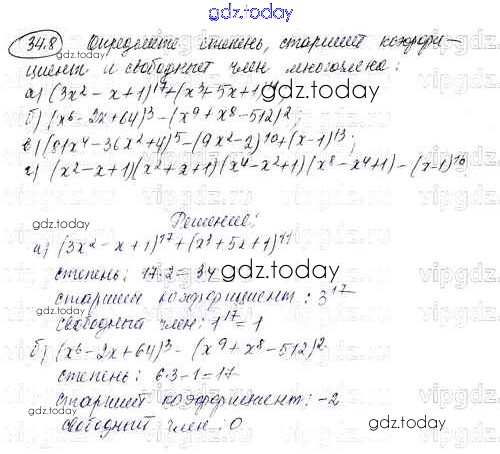 gdz.today
34.8 Определите степень, старший коэффи-
циент и свободный член многочлена:
а) (3x² - x + 1)¹⁷ + (x³ + 5x + 1)¹¹
gdz.today
б) (x⁶ - 2x + 64)³ - (x⁹ + x⁸ - 512)²;
в) (81x⁴ - 36x² + 4)⁵ - (9x² - 2)¹⁰ + (x - 1)¹³;
г) (x² - x + 1)(x² + x + 1)(x⁴ - x² + 1)(x⁸ - x⁴ + 1) - (x - 1)¹⁶
gdz.today
Решение:
а) (3x² - x + 1)¹⁷ + (x³ + 5x + 1)¹¹
степень: 17·2 = 34
gdz.today
старший коэффициент: 3¹⁷
свободный член: 1¹⁷ = 1
gdz.today
б) (x⁶ - 2x + 64)³ - (x⁹ + x⁸ - 512)²
степень: 6·3 - 1 = 17
старший коэффициент: -2
gdz.today
свободный член: 0
gdz.today